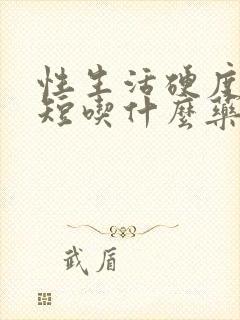 性生活硬度
短喫什麼藥
武盾